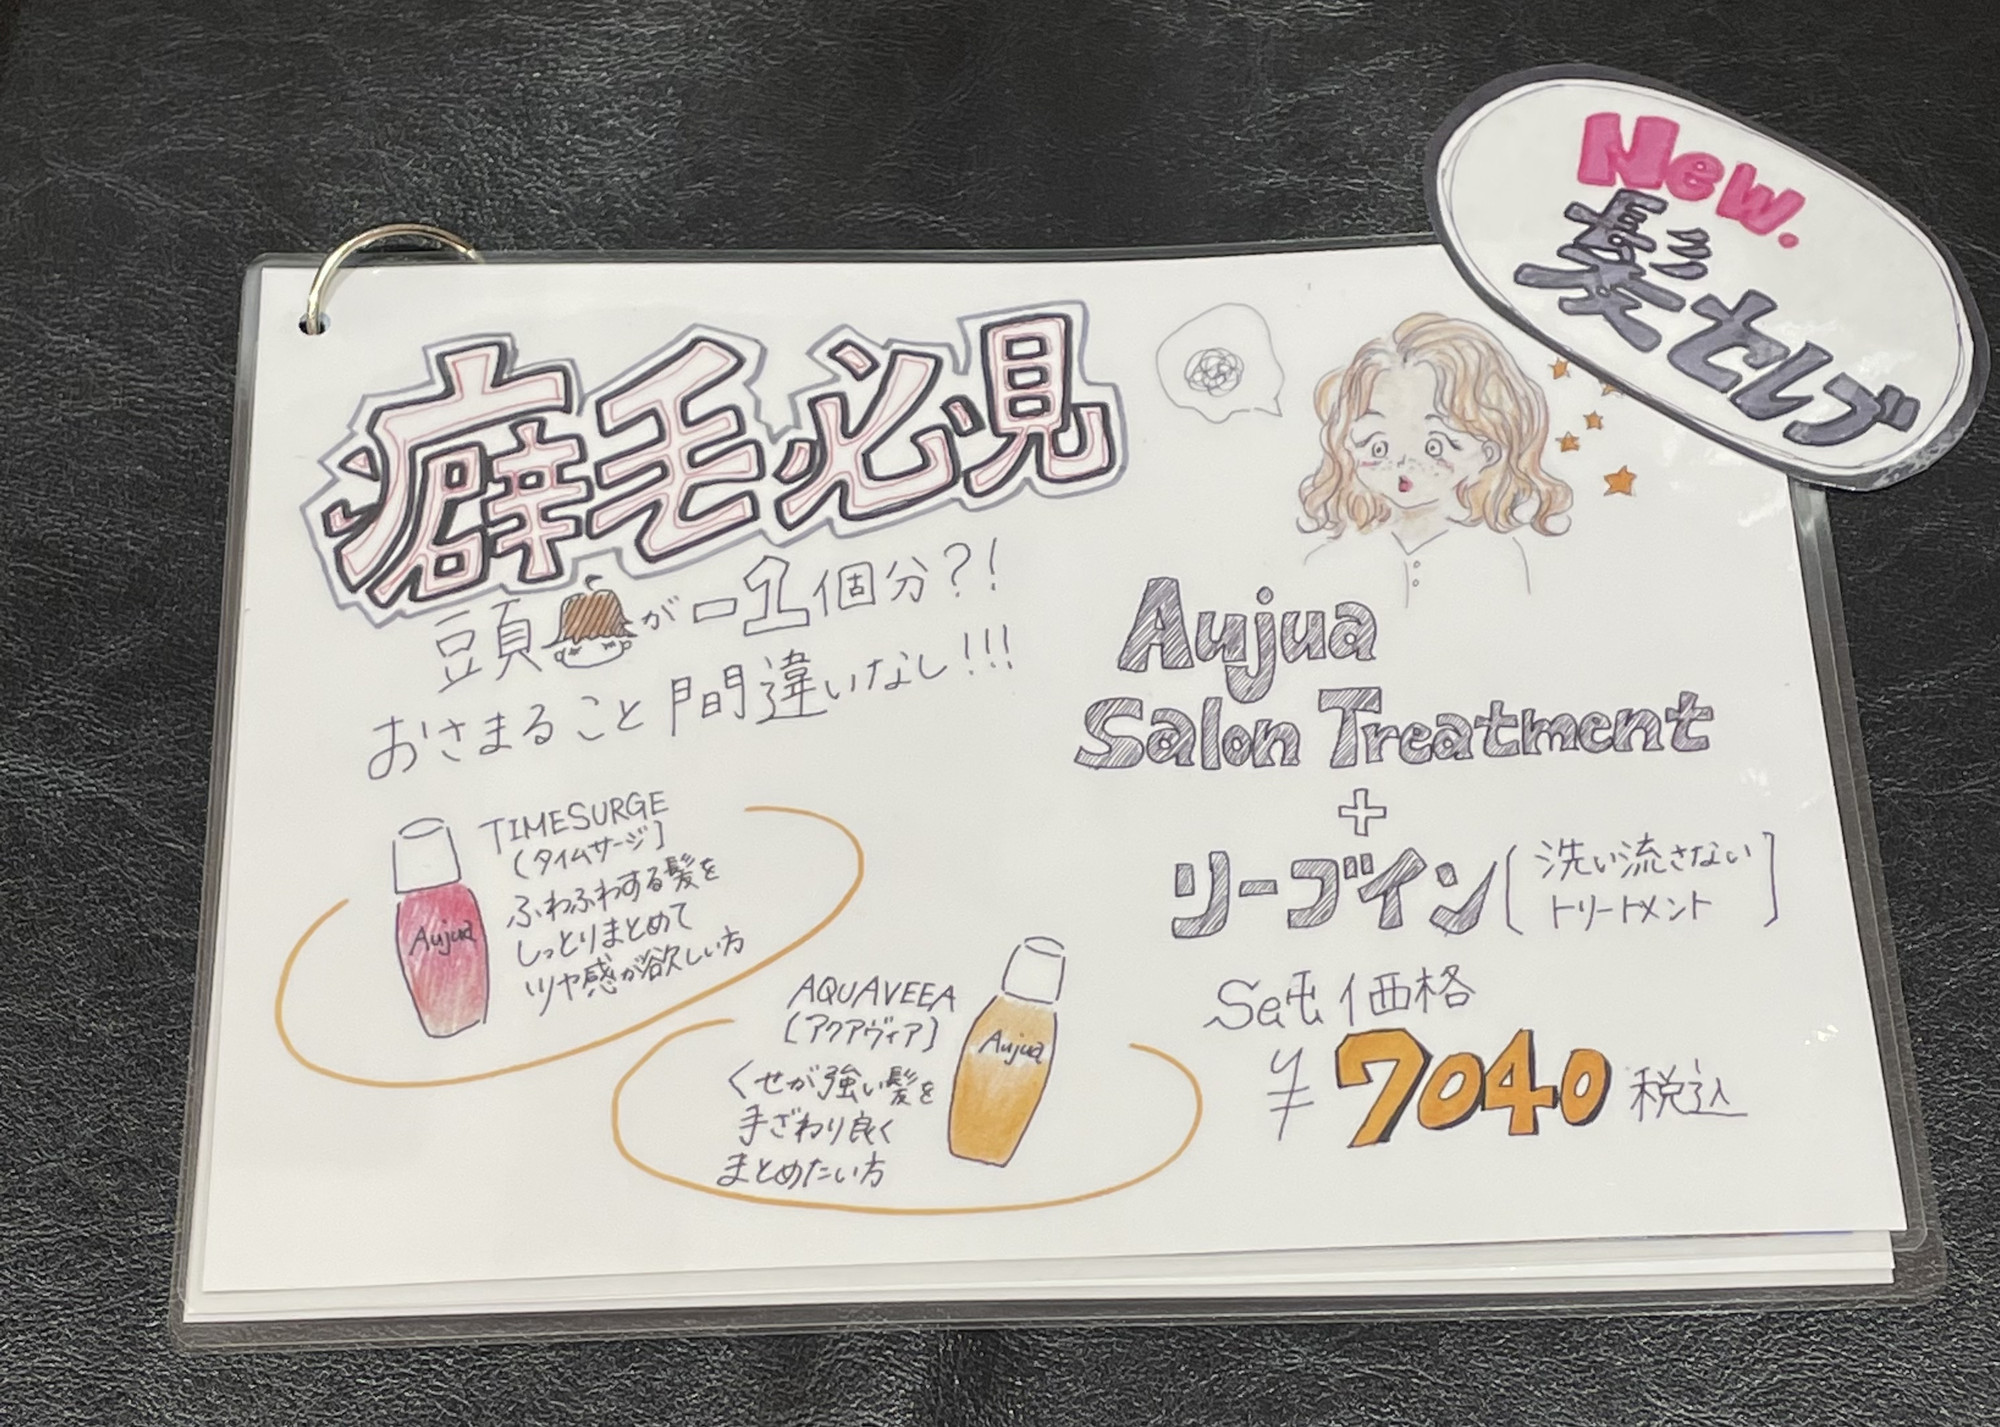 New.
髪セレブ
癖毛必見
頭が-1個分?!
おさまること間違いなし!!!
Aujua
Salon Treatment
+
リーブイン(洗い流さない
トリートメント)
Set価格
¥7040税込
TIMESURGE
(タイムサージ)
ふわふわする髪を
しっとりまとめて
ツヤ感が欲しい方
Aujua
AQUAVEEA
(アクアヴィア)
くせが強い髪を
手ざわり良く
まとめたい方
Aujua